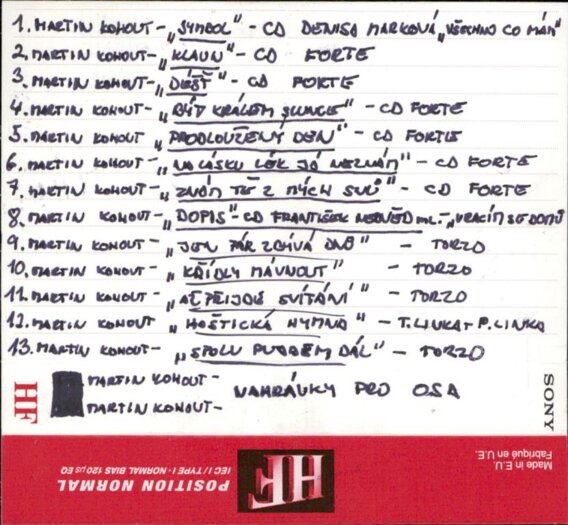 1. MARTIN KOHOUT - „SYMBOL" - CD DENISA MARKOVÁ „VŠECHNO CO MÁM"
2. MARTIN KOHOUT - „KLAUN" - CD FORTE
3. MARTIN KOHOUT - „DÉŠŤ" - CD FORTE
4. MARTIN KOHOUT - „BÝT KRÁLEM SLUNCE" - CD FORTE
5. MARTIN KOHOUT „PRODLOUŽENÝ DEN" - CD FORTE
6. MARTIN KOHOUT - „NA LÁSKU LÉK JÁ NEZNÁM" - CD FORTE
7. MARTIN KOHOUT - „ZNÁM TĚ Z MÝCH SNŮ" - CD FORTE
8. MARTIN KOHOUT - „DOPIS" - CD FRANTIŠEK NEDVĚD ml. - „VRACÍM SE DOMŮ
9. MARTIN KOHOUT - „JEN PÁR ZBÝVÁ DNŮ" - TORZO
10. MARTIN KOHOUT - „KŘÍDLY MÁVNOUT" - TORZO
11. MARTIN KOHOUT - „AŤ PŘIJDE SVÍTÁNÍ" - TORZO
12. MARTIN KOHOUT - „HOŠTICKÁ HYMNA" - T. LINKA + P. LINKA
13. MARTIN KOHOUT - „SPOLU PUJDEM DÁL" - TORZO
MARTIN KOHOUT -
MARTIN KOHOUT -
NAHRÁVKY PRO OSA
HF
SONY
POSITION NORMAL
IEC I / TYPE I · NORMAL BIAS 120 µs EQ
HF
Made in E.U.
Fabriqué en U.E.